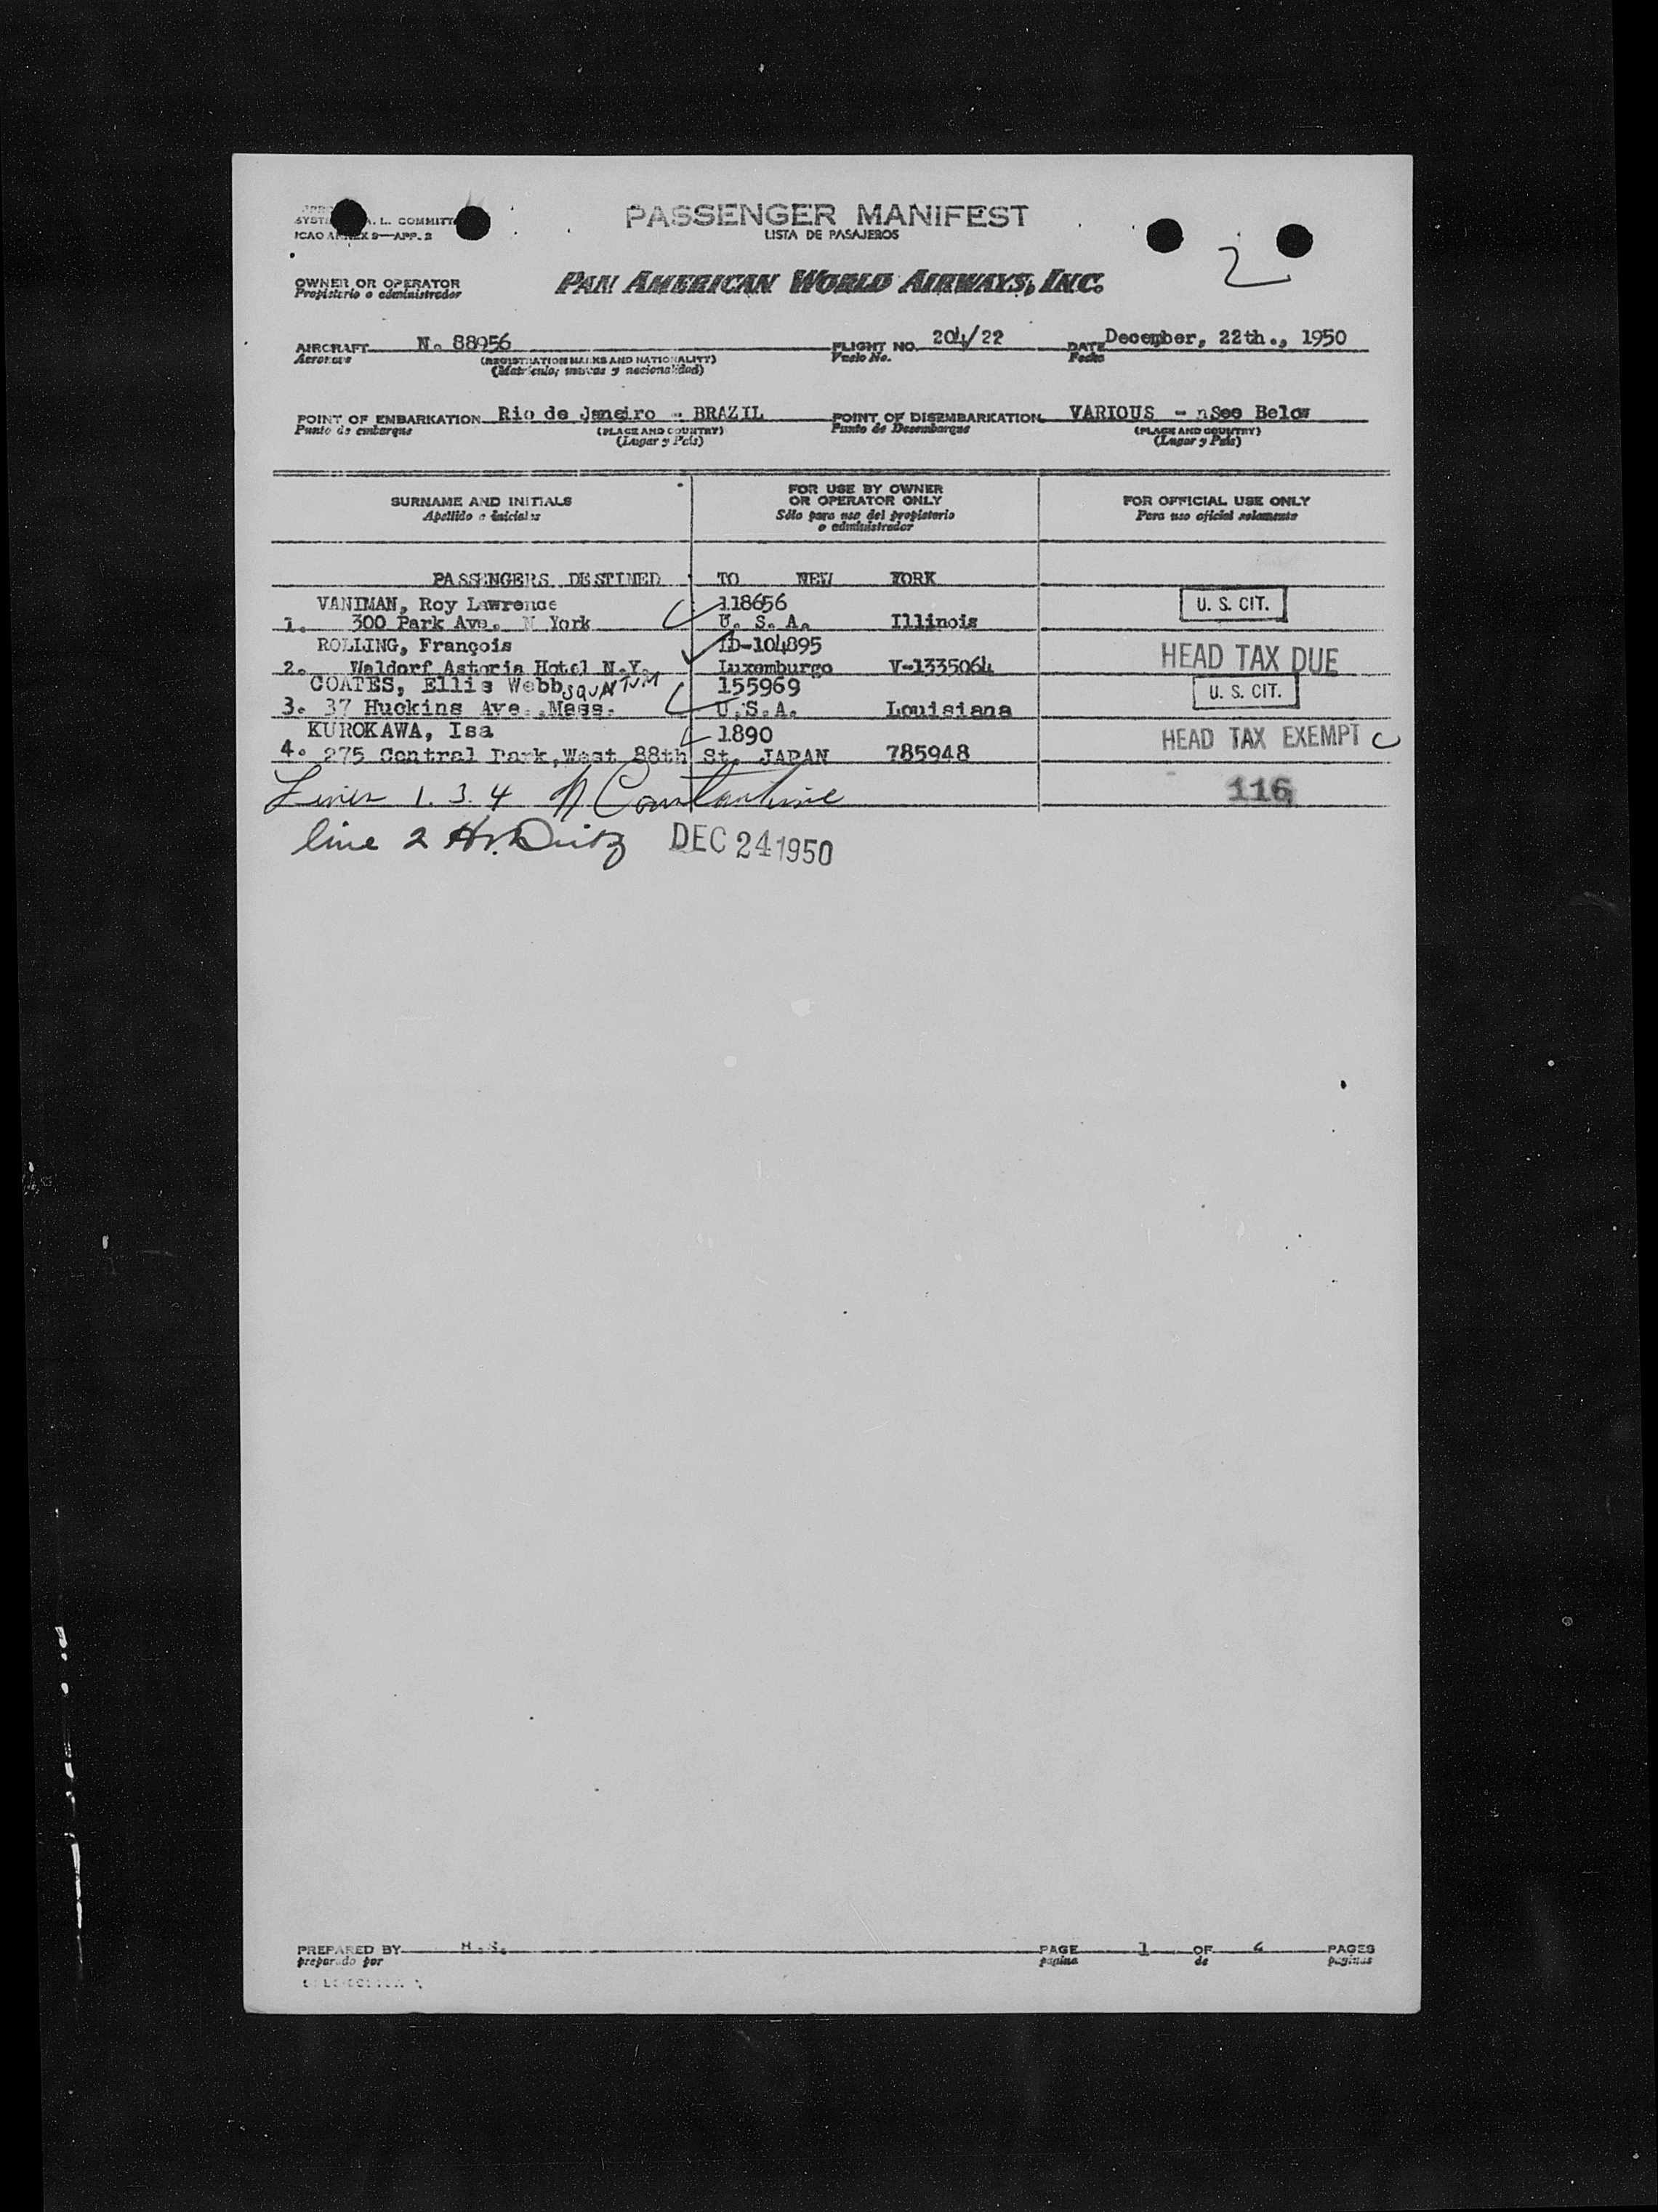 PASSENGER MANIFEST
LISTA DE PASAJEROS
A. L. COMMITT
ICAO ANNEX 9—APP. 2
2
OWNER OR OPERATOR
Propietario o administrador
PAN AMERICAN WORLD AIRWAYS, INC.
AIRCRAFT N. 88956 FLIGHT NO. 204/22 DATE December, 22th., 1950
Aeronave (REGISTRATION MARKS AND NATIONALITY) Vuelo No. Fecha
(Matrícula, marcas y nacionalidad)
POINT OF EMBARKATION Rio de Janeiro - BRAZIL POINT OF DISEMBARKATION VARIOUS - nSee Below
Punto de embarque (PLACE AND COUNTRY) Punto de Desembarque (PLACE AND COUNTRY)
(Lugar y País) (Lugar y País)
SURNAME AND INITIALS FOR USE BY OWNER OR OPERATOR ONLY FOR OFFICIAL USE ONLY
Apellido e iniciales Sólo para uso del propietario o administrador Para uso oficial solamente
PASSENGERS DESTINED TO NEW YORK
VANIMAN, Roy Lawrence 118656 U. S. CIT.
1. 300 Park Ave. N York U. S. A. Illinois
ROLLING, François ID-104895 HEAD TAX DUE
2. Waldorf Astoria Hotel N.Y. Luxemburgo V-1335064
COATES, Ellis Webb SQUANTUM 155969 U. S. CIT.
3. 37 Huckins Ave. Mass. U.S.A. Louisiana
KUROKAWA, Isa 1890 HEAD TAX EXEMPT C
4. 275 Central Park, West 88th St. JAPAN 785948
Lines 1. 3. 4 N Constantine 116
line 2 H. Dietz DEC 24 1950
PREPARED BY H. S. PAGE 1 OF PAGES
preparado por página de páginas